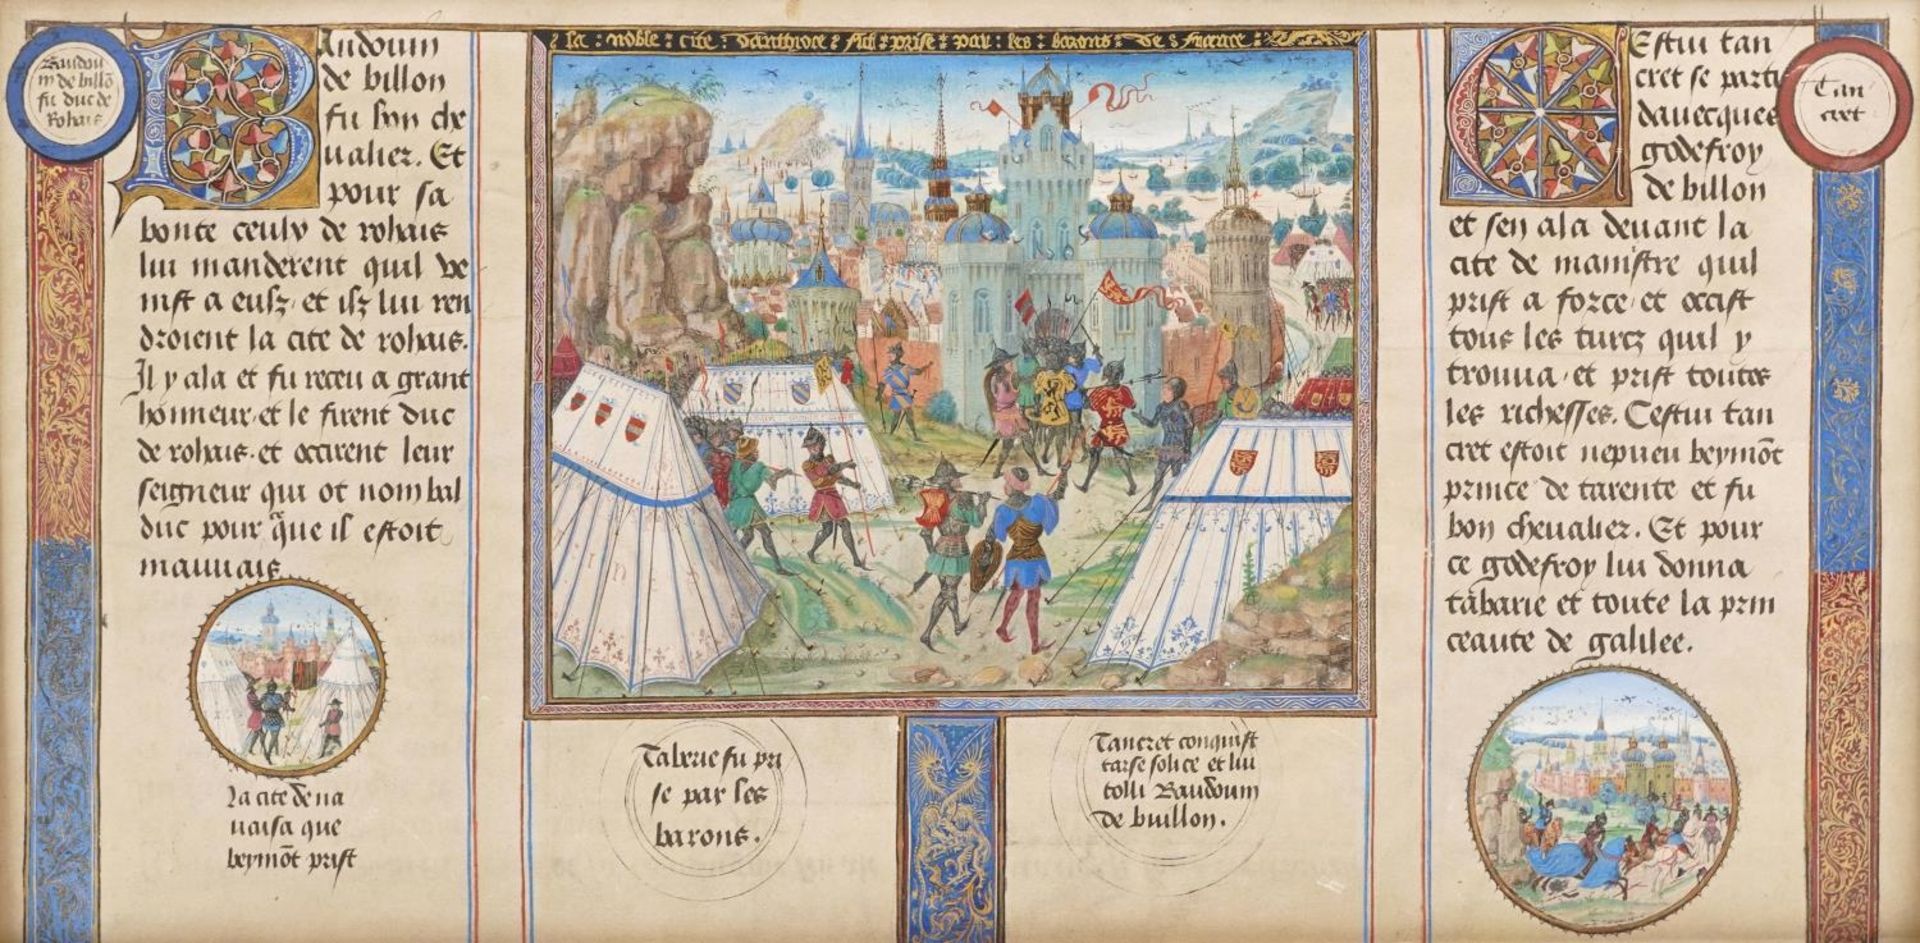 Baudou
in de billō
fu duc de
Rohais
Baudouin
de billon
fu bon che
ualier. Et
pour sa
bonte ceulx de rohais
lui manderent quil ve
nist a eulz et ilz lui ren
droient la cite de rohais.
Il y ala et fu receu a grant
honneur et le firent duc
de rohais. et occirent leur
seigneur qui ot nom bal
duc pour q̄ue il estoit
mauuais
La cite de na
uaisa que
beymōt prist
la : noble : cite : danthioce : fut : prise : par : les : barons : de : france :
Tabrie fu pri
se par les
barons.
Tancret conquist
tarse solice et lui
tolli Baudouin
de buillon.
Cestui tan
cret se parti
dauecques
godefroy
de billon
et sen ala deuant la
cite de manistre quil
prist a force et occist
tous les turcz quil y
trouua et prist toutes
les richesses. Cestui tan
cret estoit nepueu beymōt
prince de tarente et fu
bon cheualier. Et pour
ce godefroy lui donna
tabarie et toute la prin
ceaute de galilee.
Tan
cret